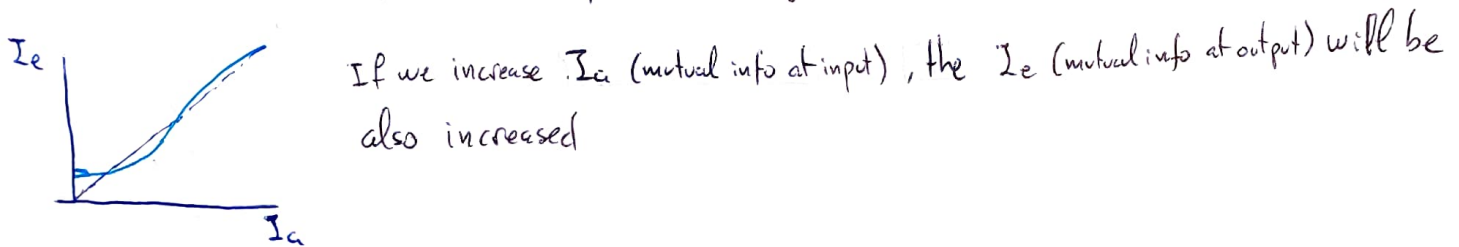 Ie
If we increase Ia (mutual info at input), the Ie (mutual info at output) will be
also increased
Ia